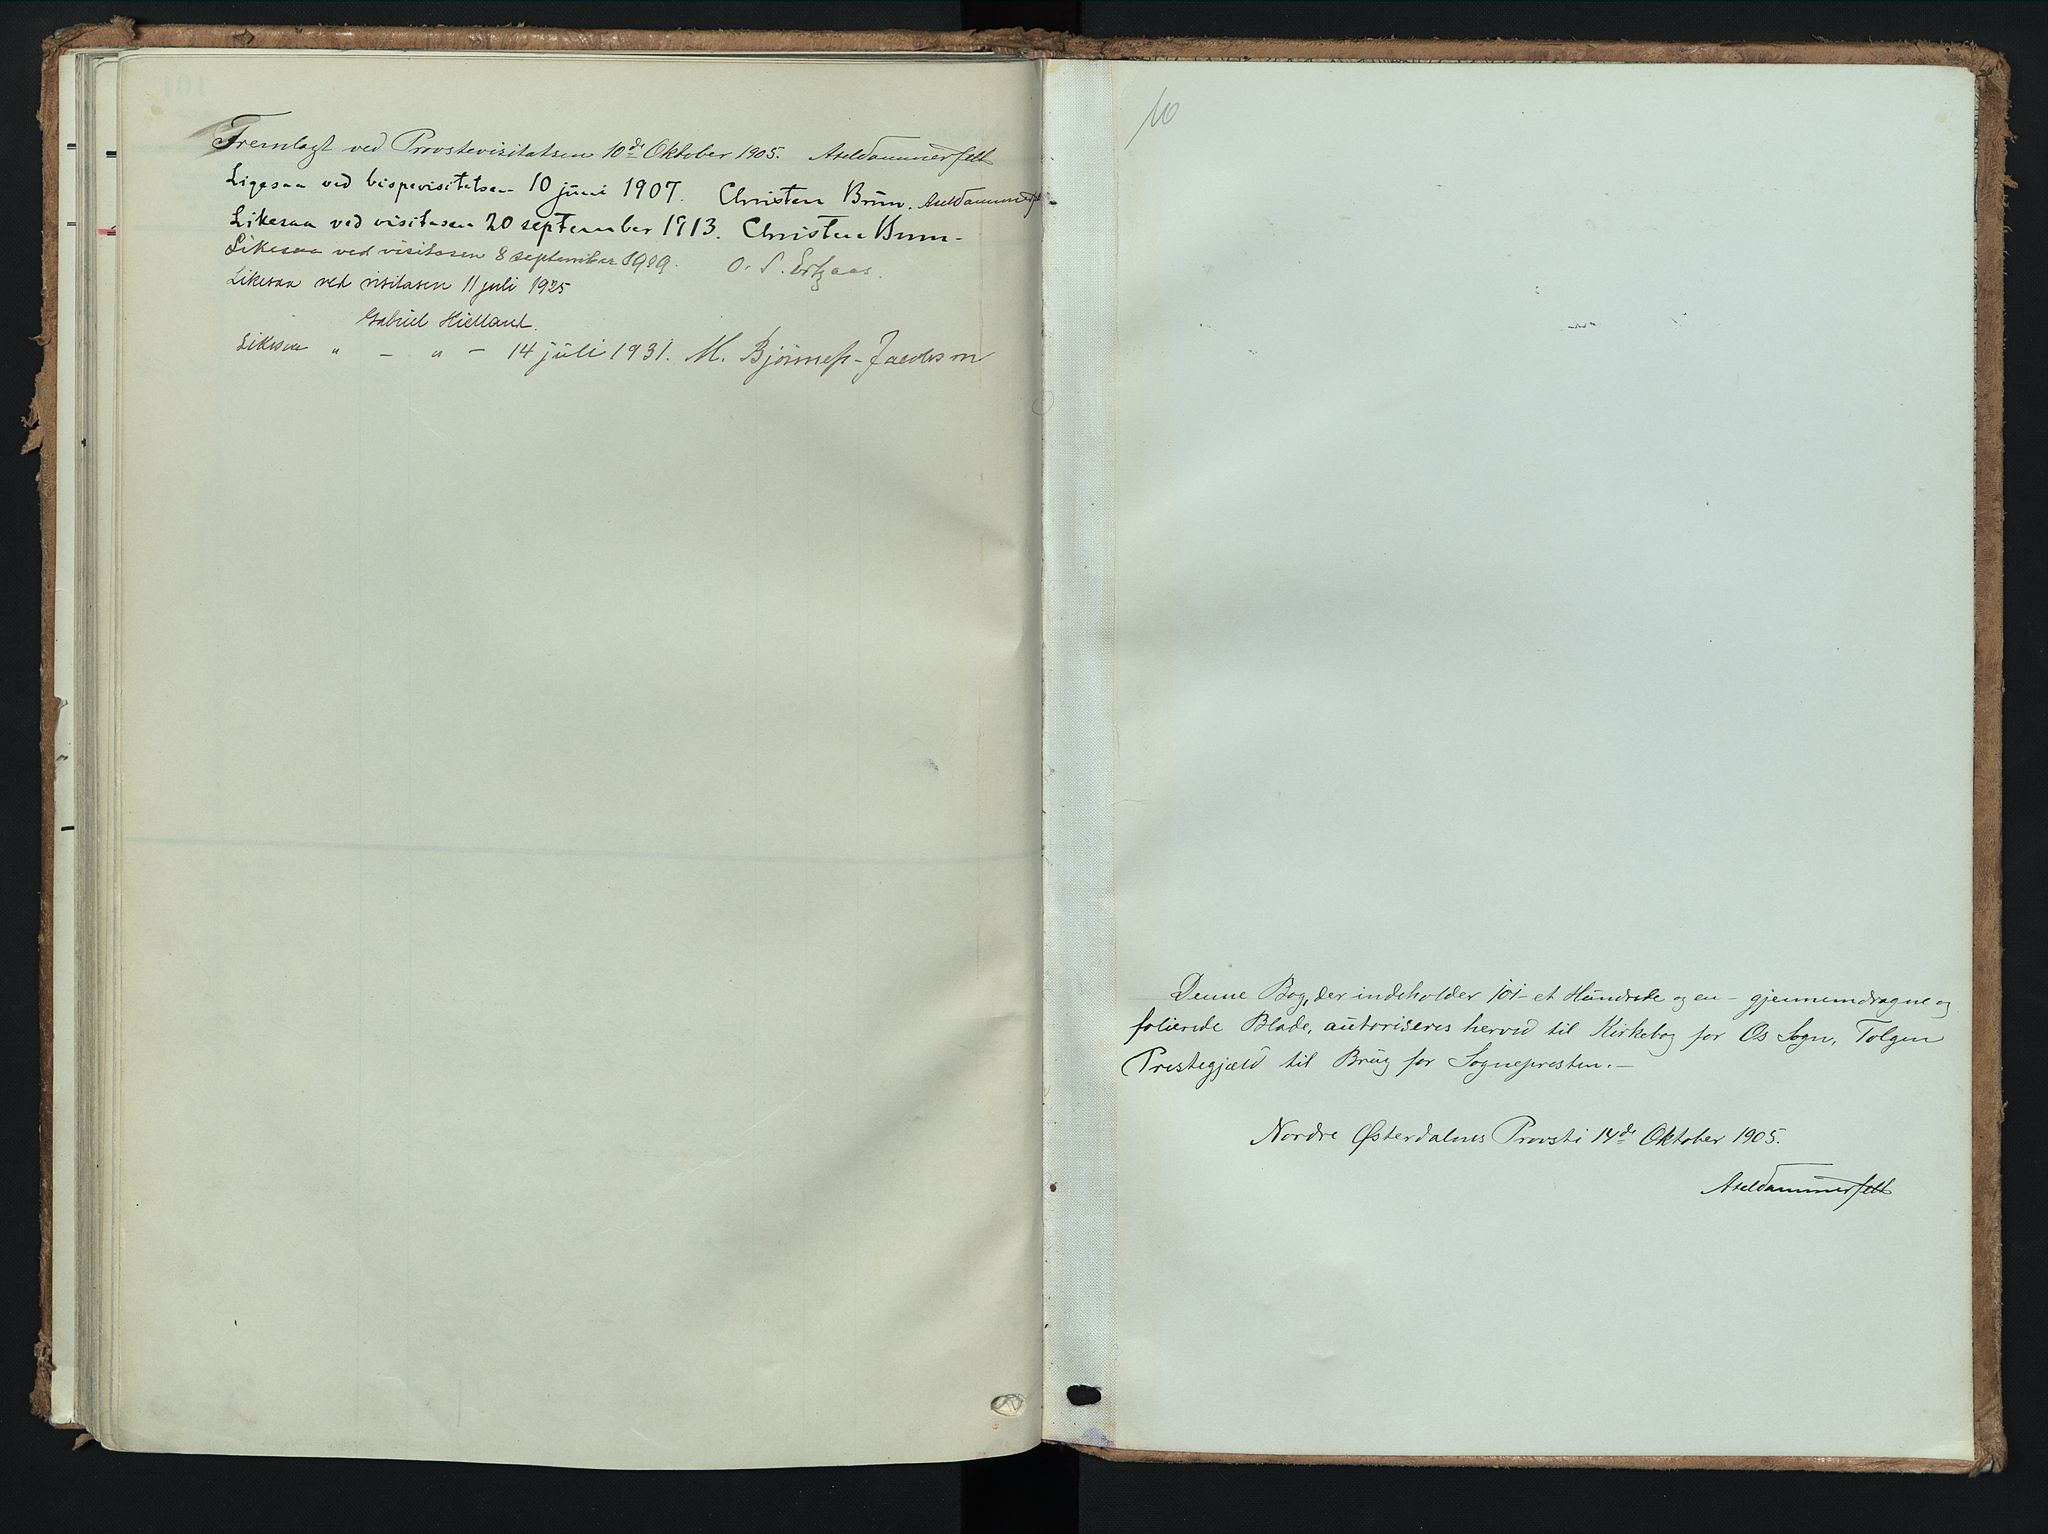 Fremlagt ved Provstevisitatsen 10de Oktober 1905. Axel Dammerfelt
Ligesaa ved bispevisitatsen 10 juni 1907. Christen Brun. Axel Dammerfelt
Likesaa ved visitasen 20 september 1913. Christen Brun
Likesaa ved visitasen 8 september 1919. O. S.
Likesaa ved visitasen 11 juli 1925
Gabriel Kielland.
Likesaa " – " – 14 juli 1931. M. Bjønness-Jacobsen
10
Denne Bog, der indeholder 101 – et Hundrede og en – gjennemdragne og
folierede Blade, autoriseres herved til Kirkebog for Os Sogn, Tolgen
Prestegjæld til Brug for Sognepresten. –
Nordre Østerdalens Provsti 14de Oktober 1905.
Axel Dammerfelt